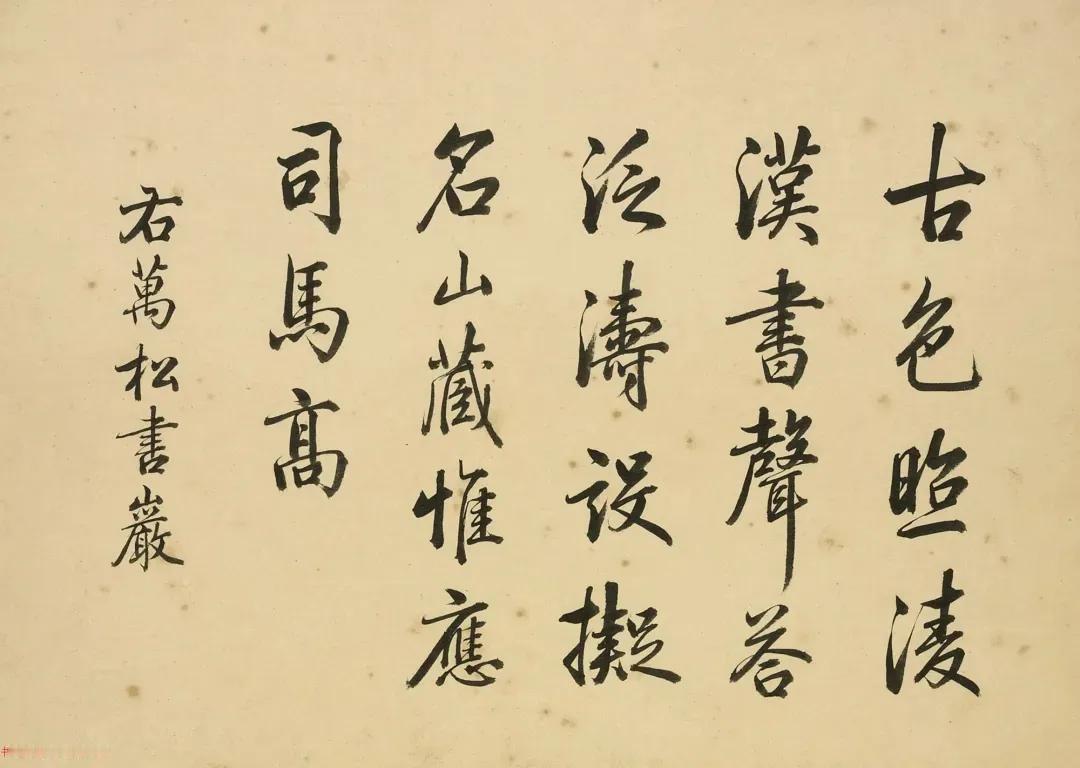 古色照凌
漢書聲答
泛濤設擬
名山藏惟應
司馬高
右萬松書巖